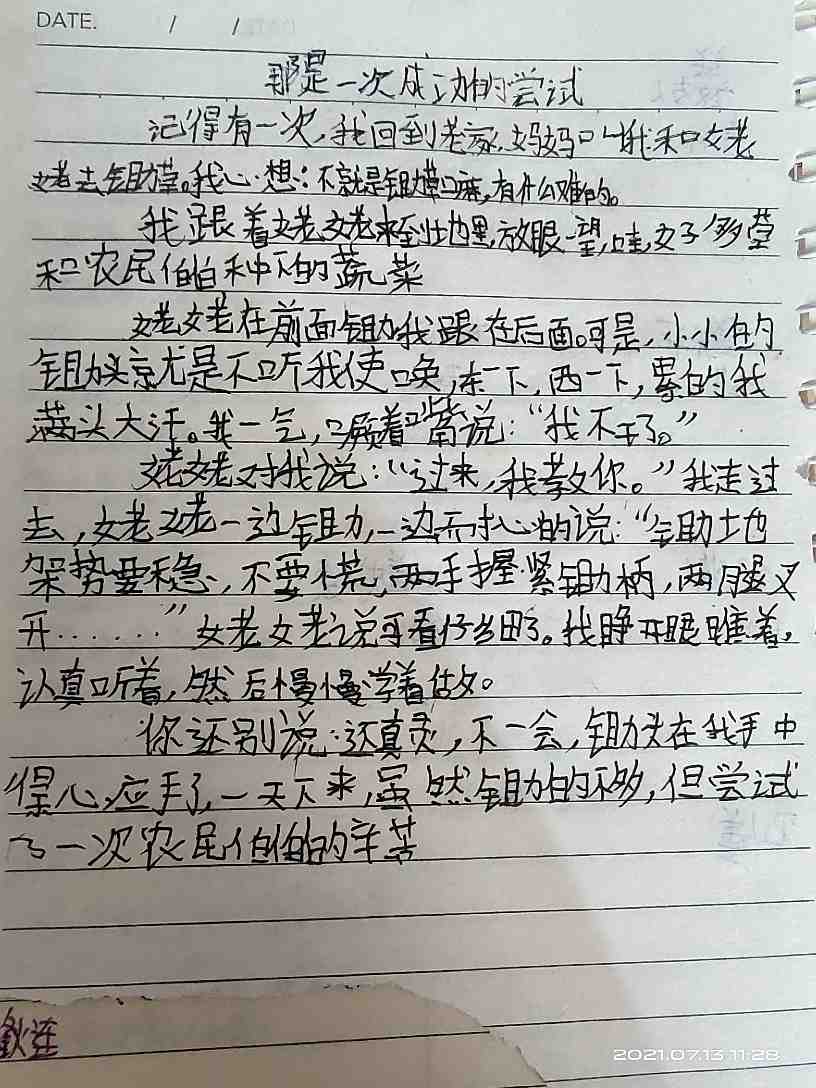 DATE. / /
那是一次成功的尝试
记得有一次,我回到老家,妈妈叫我和姥
姥去锄草。我心想:不就是锄草嘛,有什么难的。
我跟着姥姥来到地里,放眼一望,哇,好多草
和农民伯伯种下的蔬菜
姥姥在前面锄我跟在后面。可是,小小的
锄头就是不听我使唤,东一下,西一下,累的我
满头大汗。我一气,噘着嘴说:“我不干了。”
姥姥对我说:“过来,我教你。”我走过
去,姥姥一边锄,一边耐心的说:“锄地
架势要稳,不要慌,两手握紧锄柄,两腿叉
开......”姥姥说可看仔细了。我睁开眼瞧着,
认真听着,然后慢慢学着做。
你还别说:还真灵,不一会,锄头在我手中
得心应手了,一天下来,虽然锄的不多,但尝试
了一次农民伯伯的辛苦
连
2021.07.13 11:28